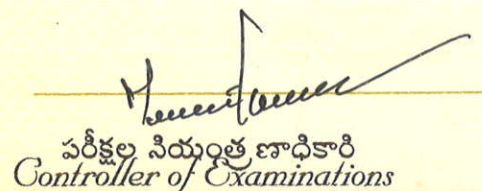 పరీక్షల నియంత్రణాధికారి
Controller of Examinations